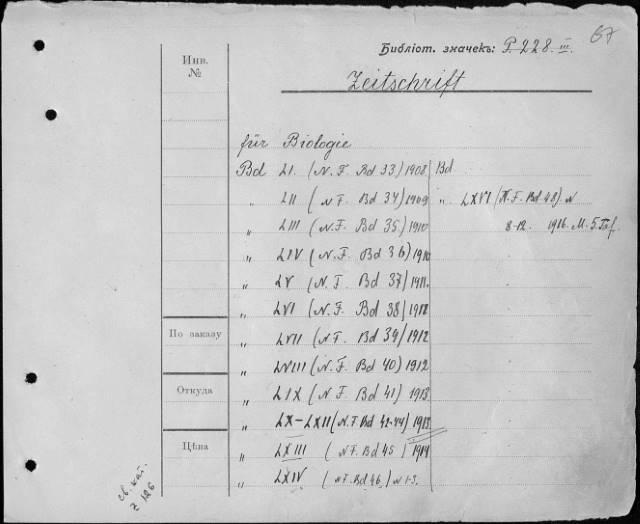 67
Библіот. значекъ: P. 228. III.
Инв. №
Zeitschrift
für Biologie
Bd LI. (N. F. Bd 33) 1908
„ LII (N F. Bd 34) 1909
„ LIII (N. F. Bd 35) 1910
„ LIV (N. F. Bd 36) 1910
„ LV (N. F. Bd 37) 1911.
„ LVI (N. F. Bd 38) 1912
„ LVII (N F. Bd 39) 1912
„ LVIII (N. F. Bd 40) 1912
„ LIX (N. F. Bd 41) 1913
„ LX–LXII (N. F Bd 42-44) 1913
„ LXIII (N F. Bd 45) 1914
„ LXIV (N F. Bd 46) N 1-3.
Bd
„ LXVI (N. F. Bd 48) N
8-12. 1916. M. 5
По заказу
Откуда
Цѣна
св. кат.
z 126